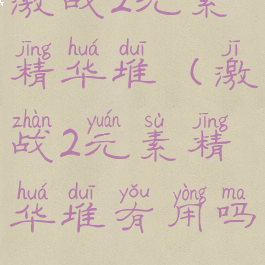 激战2元素
jīng huá duī jī
精华堆(激
zhàn yuán sù jīng
战2元素精
huá duī yǒu yòng ma
华堆有用吗